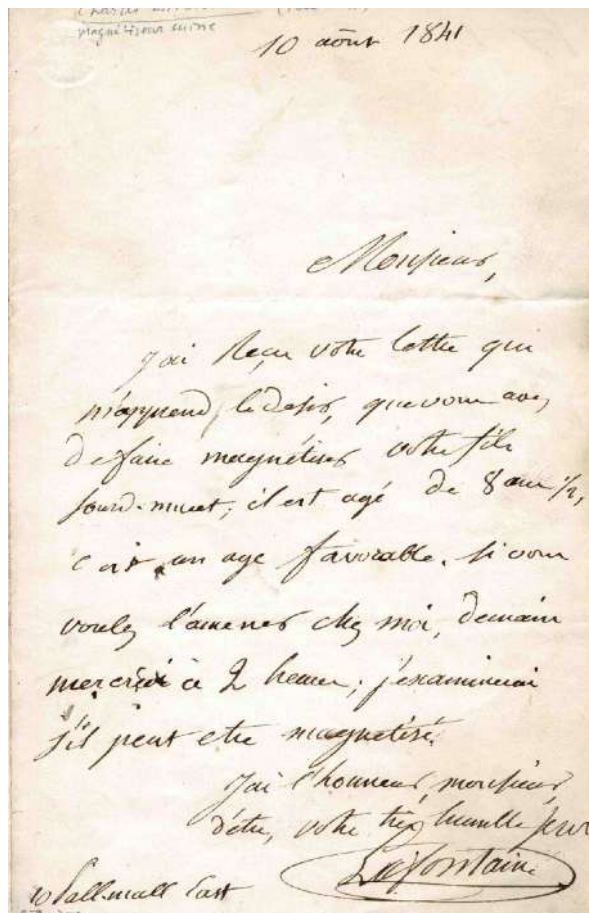 magnétiseur suisse
10 août 1841
Monsieur,
J'ai Reçu votre lettre qui
m'apprend, le desir, que vous avez
de faire magnétiser votre fils
sourd-muet; il est agé de 8 ans 1/2,
c'est un age favorable. si vous
voulez l'amener chez moi, demain
mercredi à 2 heures; j'examinerai
s'il peut etre magnetisé.
J'ai l'honneur, monsieur,
d'être, votre très humble serv
Lafontaine
10 Pall-mall East